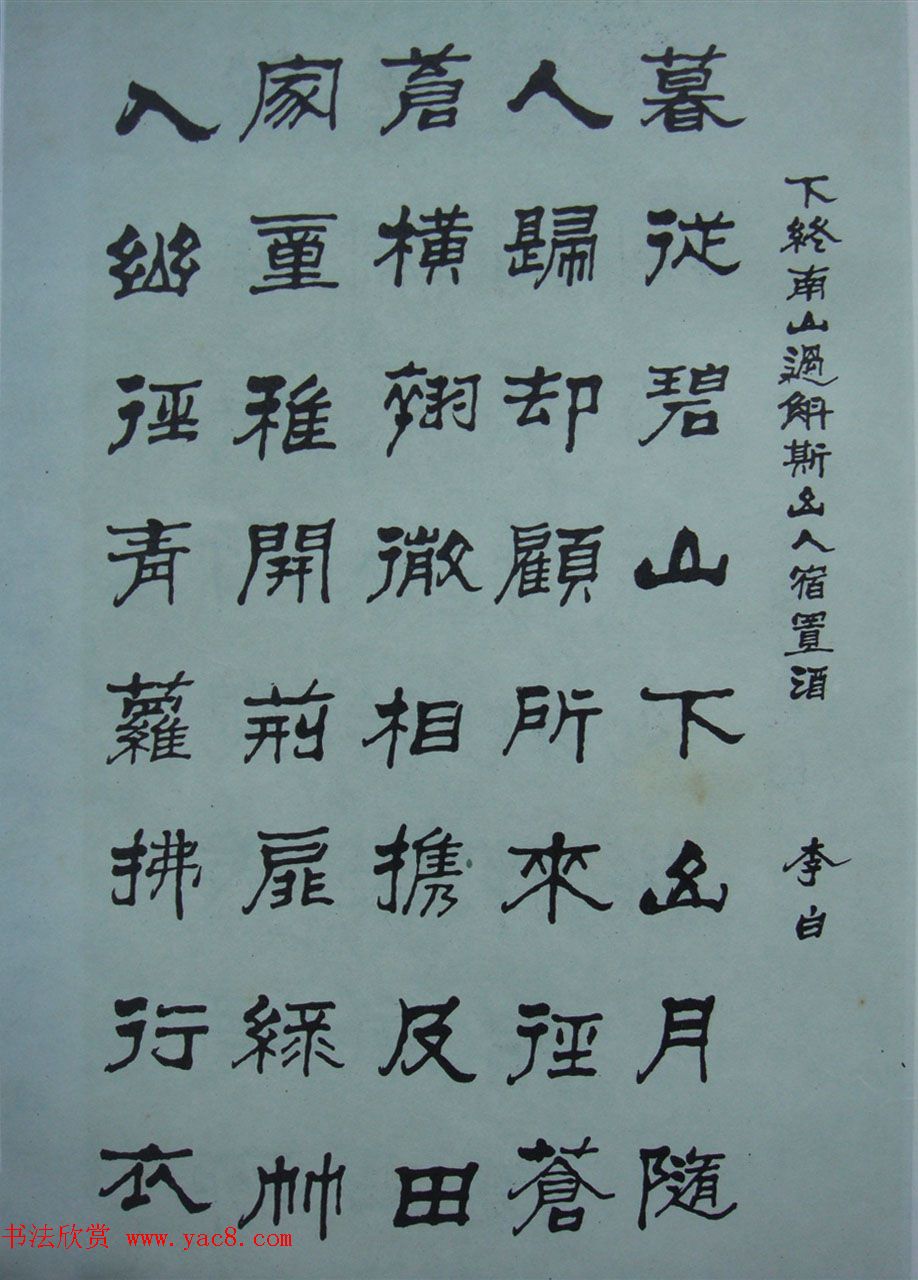 下終南山過斛斯山人宿置酒 李白
暮從碧山下山月隨
人歸却顧所來徑蒼
蒼橫翠微相携及田
家童稚開荊扉綠竹
入幽徑青蘿拂行衣
书法欣赏 www.yac8.com